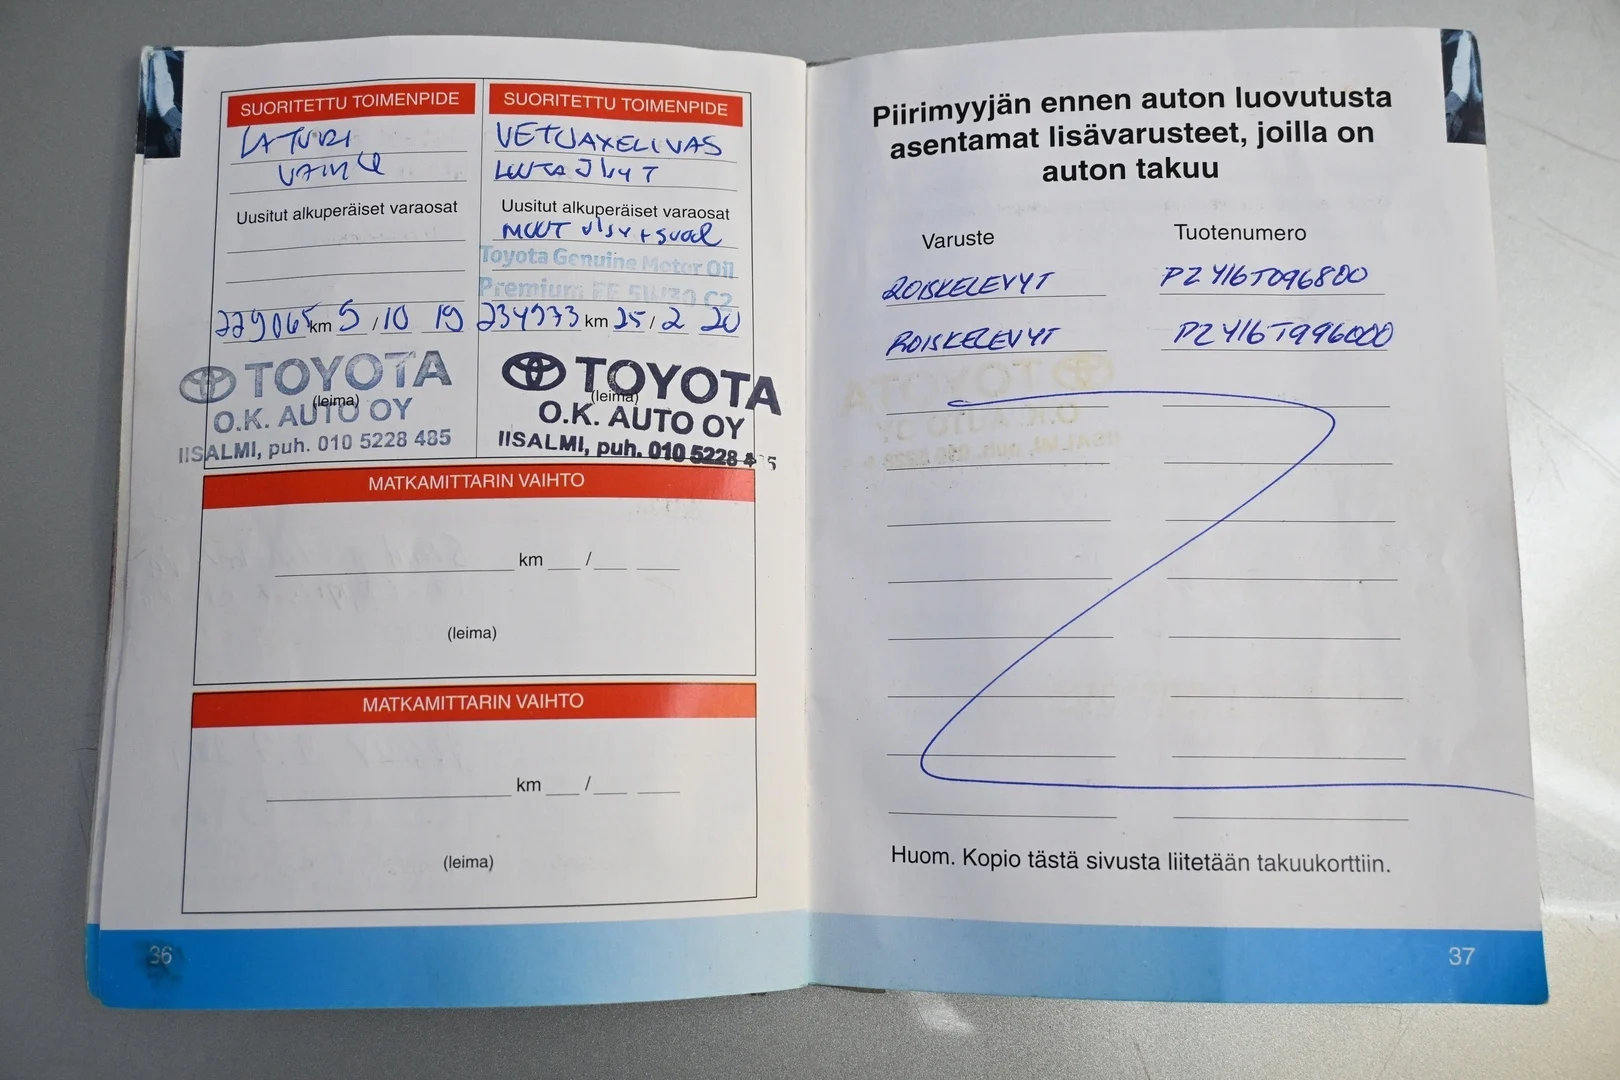 SUORITETTU TOIMENPIDE
LATURI
Uusitut alkuperäiset varaosat
229065 km 5 / 10 19
TOYOTA
(leima)
O.K. AUTO OY
IISALMI, puh. 010 5228 485
SUORITETTU TOIMENPIDE
VETOAXELI VAS
Uusitut alkuperäiset varaosat
MUUT
Toyota Genuine Motor Oil
Premium FE 5W30 C2
234973 km 25 / 2 20
TOYOTA
(leima)
O.K. AUTO OY
IISALMI, puh. 010 5228 485
MATKAMITTARIN VAIHTO
km / 
(leima)
MATKAMITTARIN VAIHTO
km / 
(leima)
36
Piirimyyjän ennen auton luovutusta
asentamat lisävarusteet, joilla on
auton takuu
Varuste Tuotenumero
ROISKELEVYT PZ416T096800
ROISKELEVYT PZ416T996000
Huom. Kopio tästä sivusta liitetään takuukorttiin.
37